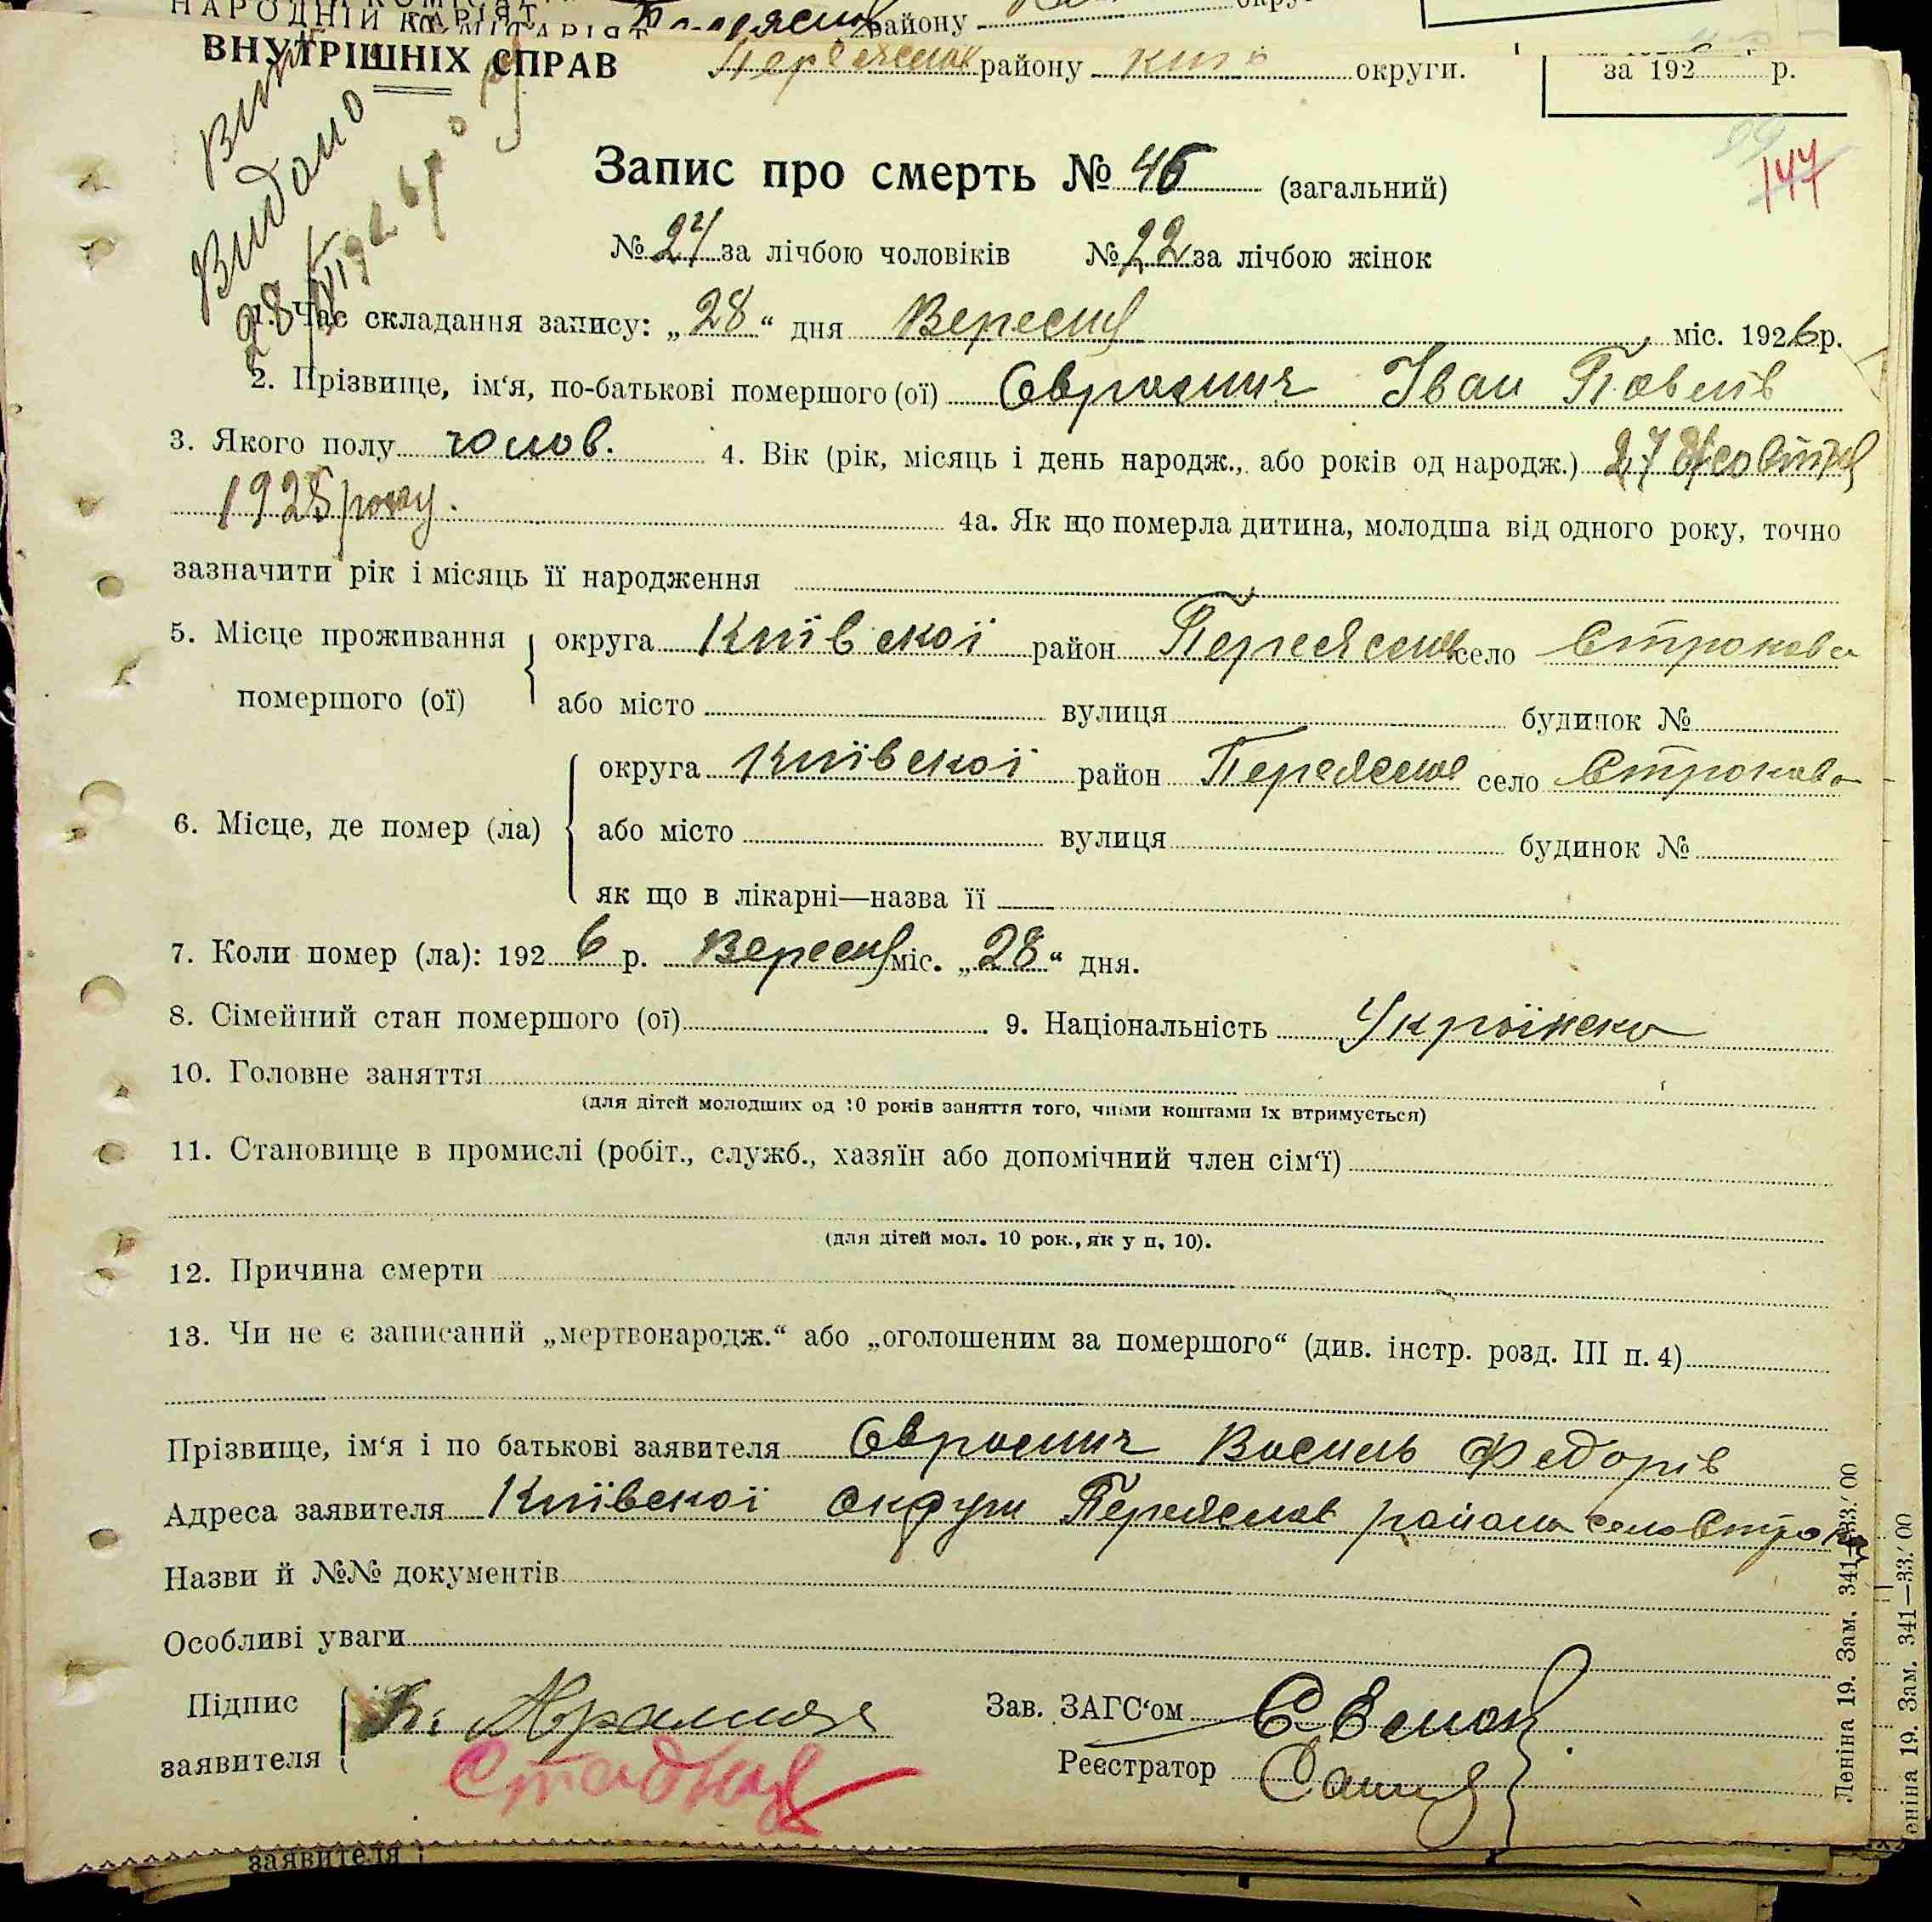 НАРОДНІЙ КОМІСАРІЯТ
району
ВНУТРІШНІХ СПРАВ Переяслав району округи.
за 192 р.
Видано
144
Запис про смерть № 46 (загальний)
№ 24 за лічбою чоловіків № 22 за лічбою жінок
1. Час складання запису: „28“ дня Вересня міс. 1926 р.
2. Прізвище, ім'я, по-батькові помершого (ої) Іван Павлів
3. Якого полу чолов. 4. Вік (рік, місяць і день народж., або років од народж.) 27 Жовтня
1925 року. 4а. Як що померла дитина, молодша від одного року, точно
зазначити рік і місяць її народження
5. Місце проживання помершого (ої) округа Київскої район Переяслав село Строкова
або місто вулиця будинок №
6. Місце, де помер (ла) округа Київскої район Переяслав село Строкова
або місто вулиця будинок №
як що в лікарні—назва її
7. Коли помер (ла): 1926 р. Вересня міс. „28“ дня.
8. Сімейний стан помершого (ої) 9. Національність Україньска
10. Головне заняття
(для дітей молодших од 10 років заняття того, чиїми коштами їх втримується)
11. Становище в промислі (робіт., служб., хазяїн або допомічний член сім'ї)
(для дітей мол. 10 рок., як у п. 10).
12. Причина смерти
13. Чи не є записаний „мертвонародж.“ або „оголошеним за помершого“ (див. інстр. розд. III п. 4)
Прізвище, ім'я і по батькові заявителя Василь Федорів
Адреса заявителя Київскої округи Переяслав района село Строкова
Назви й №№ документів
Особливі уваги
Підпис заявителя
Зав. ЗАГС'ом
Реєстратор
Леніна 19. Зам. 341—33.' 00
еніна 19. Зам. 341—33.' 00
заявителя